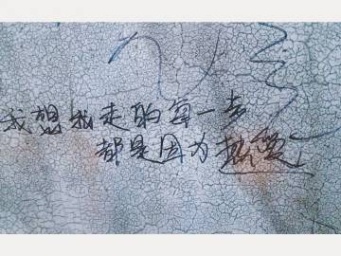 我想我走的每一步
都是因为热爱